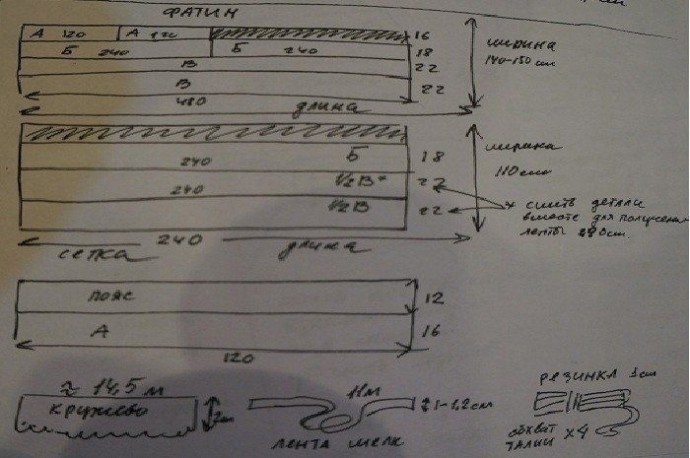 ФАТИН
А 120 А 120 16
Б 240 Б 240 18
В 22
В 22
480
длина
ширина
140-150 см
Б 18
240
1/2 В* 22
240
1/2 В 22
240
сетка длина
ширина
110 см
* сшить детали
вместе для получения
ленты 480 см.
пояс 12
А 16
120
≈ 14,5 м
кружево
11м
1-1,2см
лента шелк
резинка 1см
обхват
талии х4